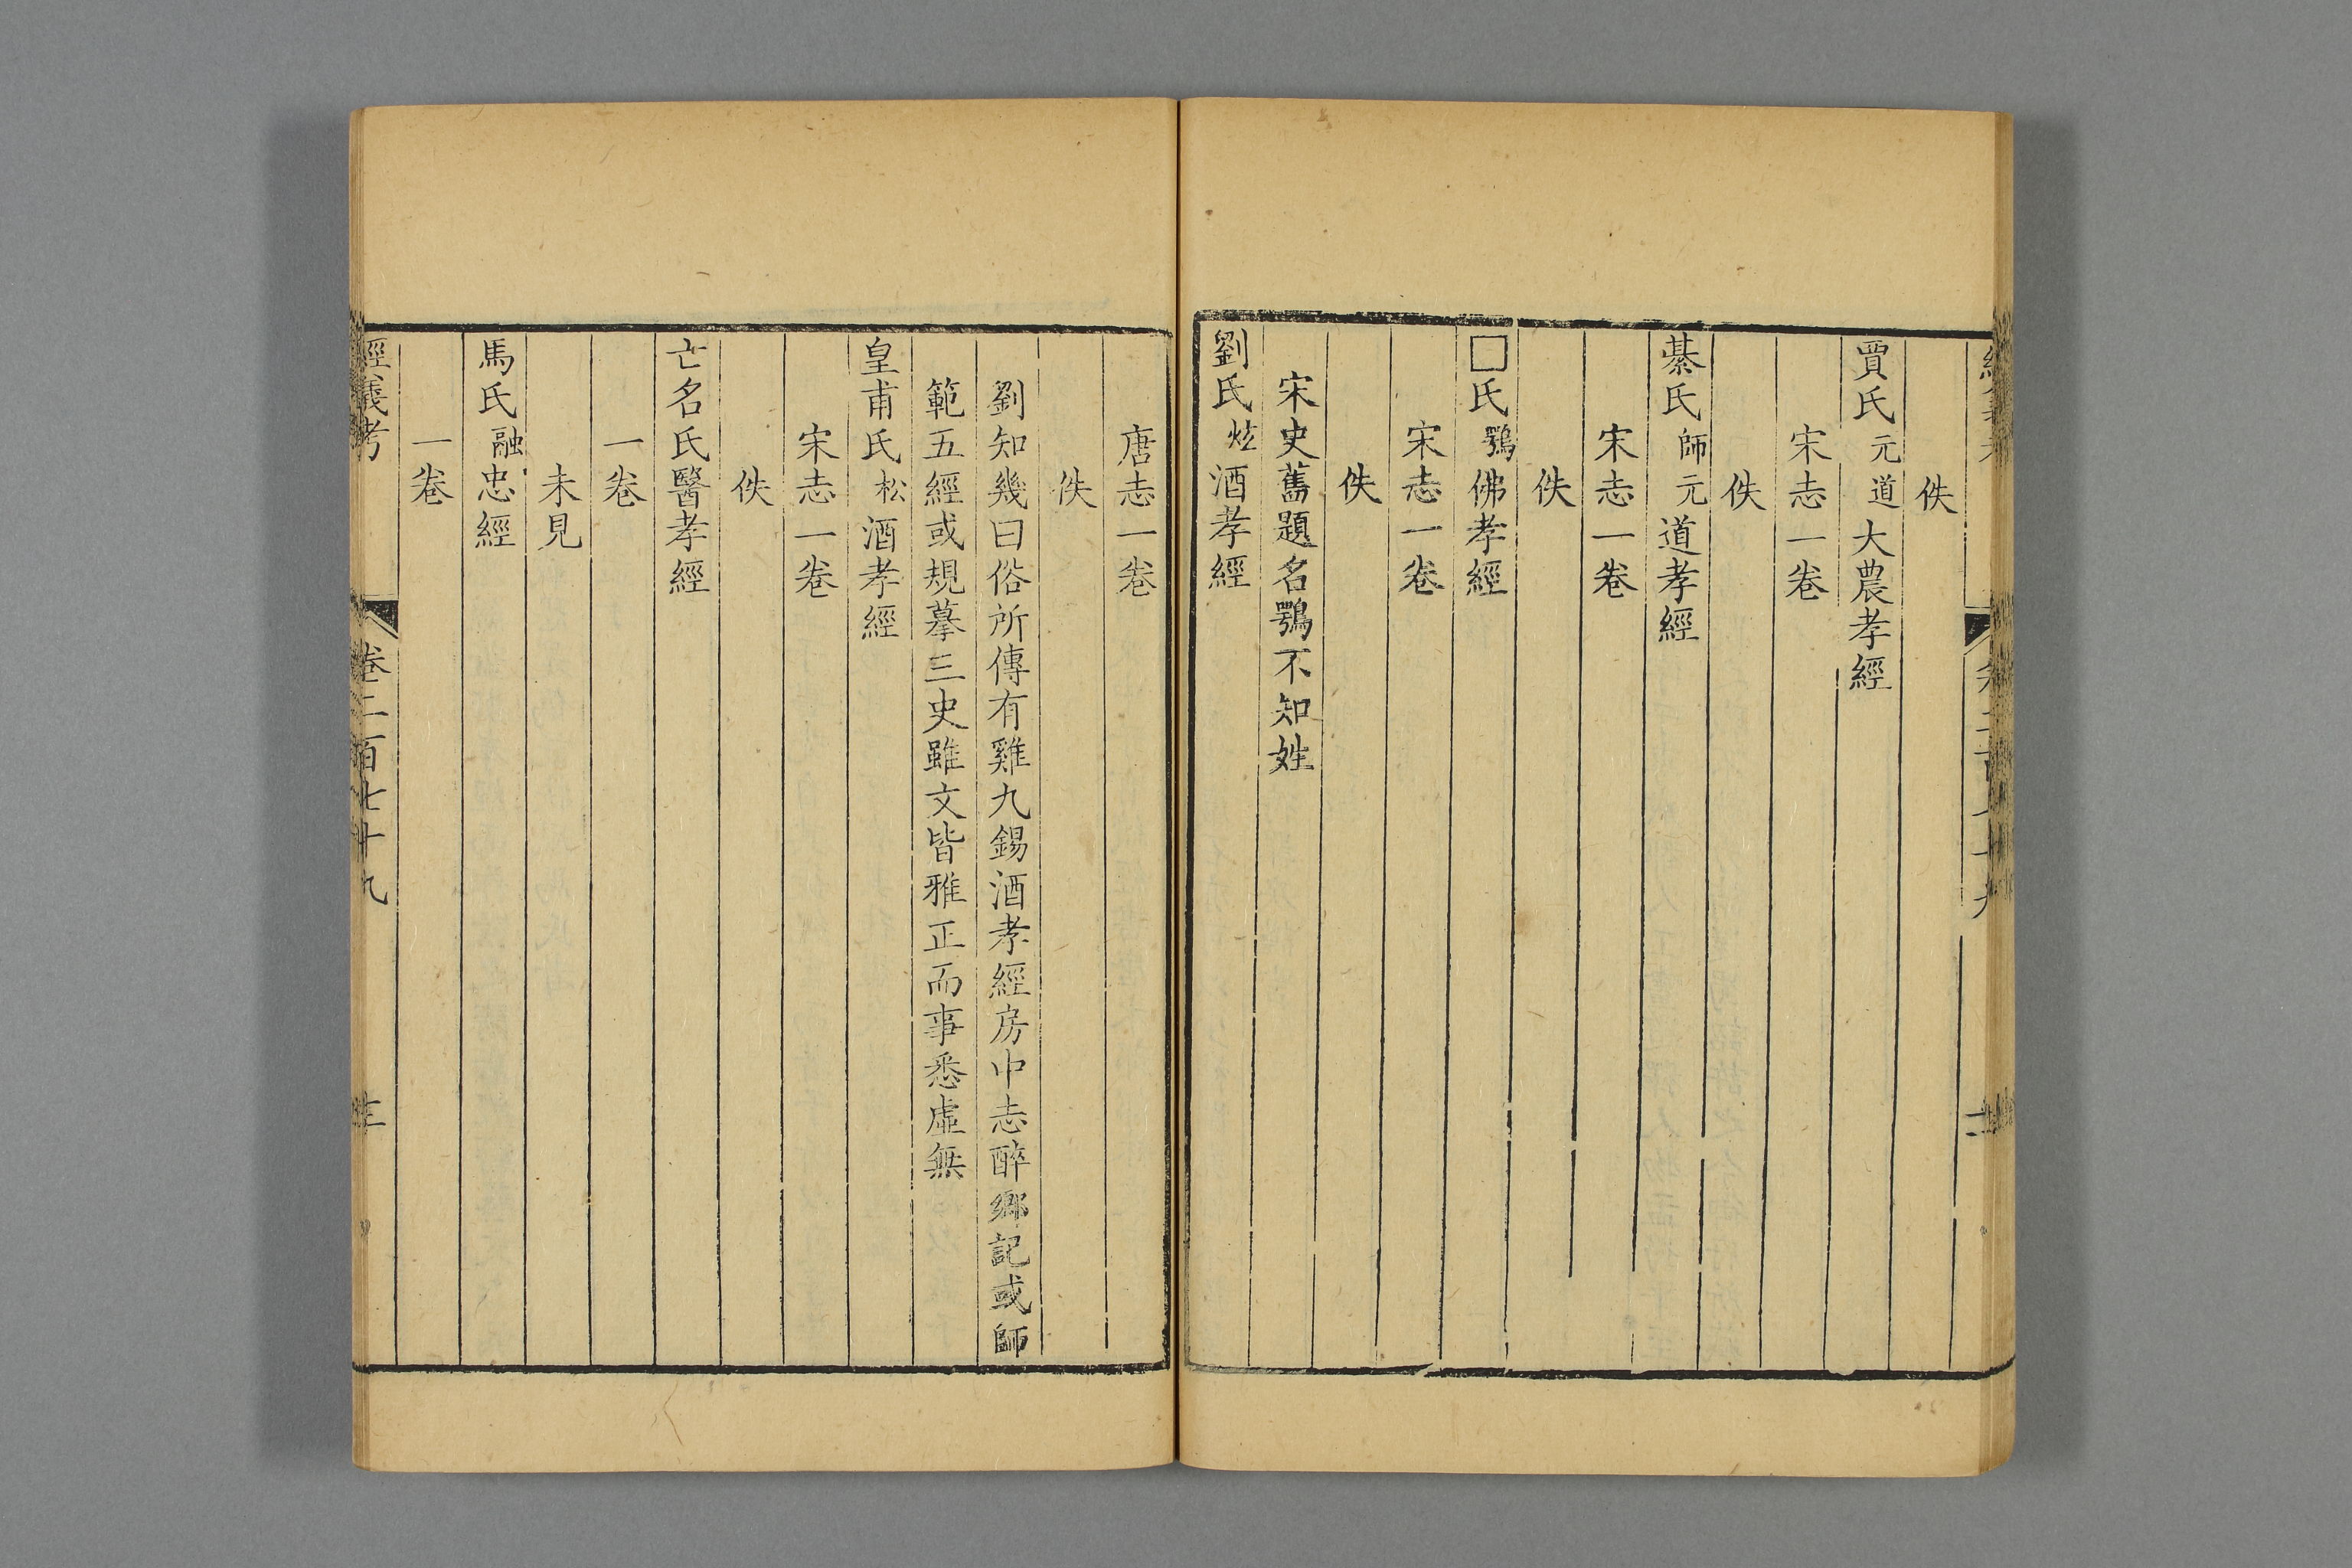 佚
賈氏元道大農孝經
宋志一卷
佚
綦氏師元道孝經
宋志一卷
佚
□氏鶚佛孝經
宋志一卷
佚
宋史舊題名鶚不知姓
劉氏炫酒孝經
唐志一卷
佚
劉知幾曰俗所傳有雞九錫酒孝經房中志醉鄉記或師
範五經或規摹三史雖文皆雅正而事悉虛無
皇甫氏松酒孝經
宋志一卷
佚
亡名氏醫孝經
一卷
未見
馬氏融忠經
一卷
經義考 卷二百七十九